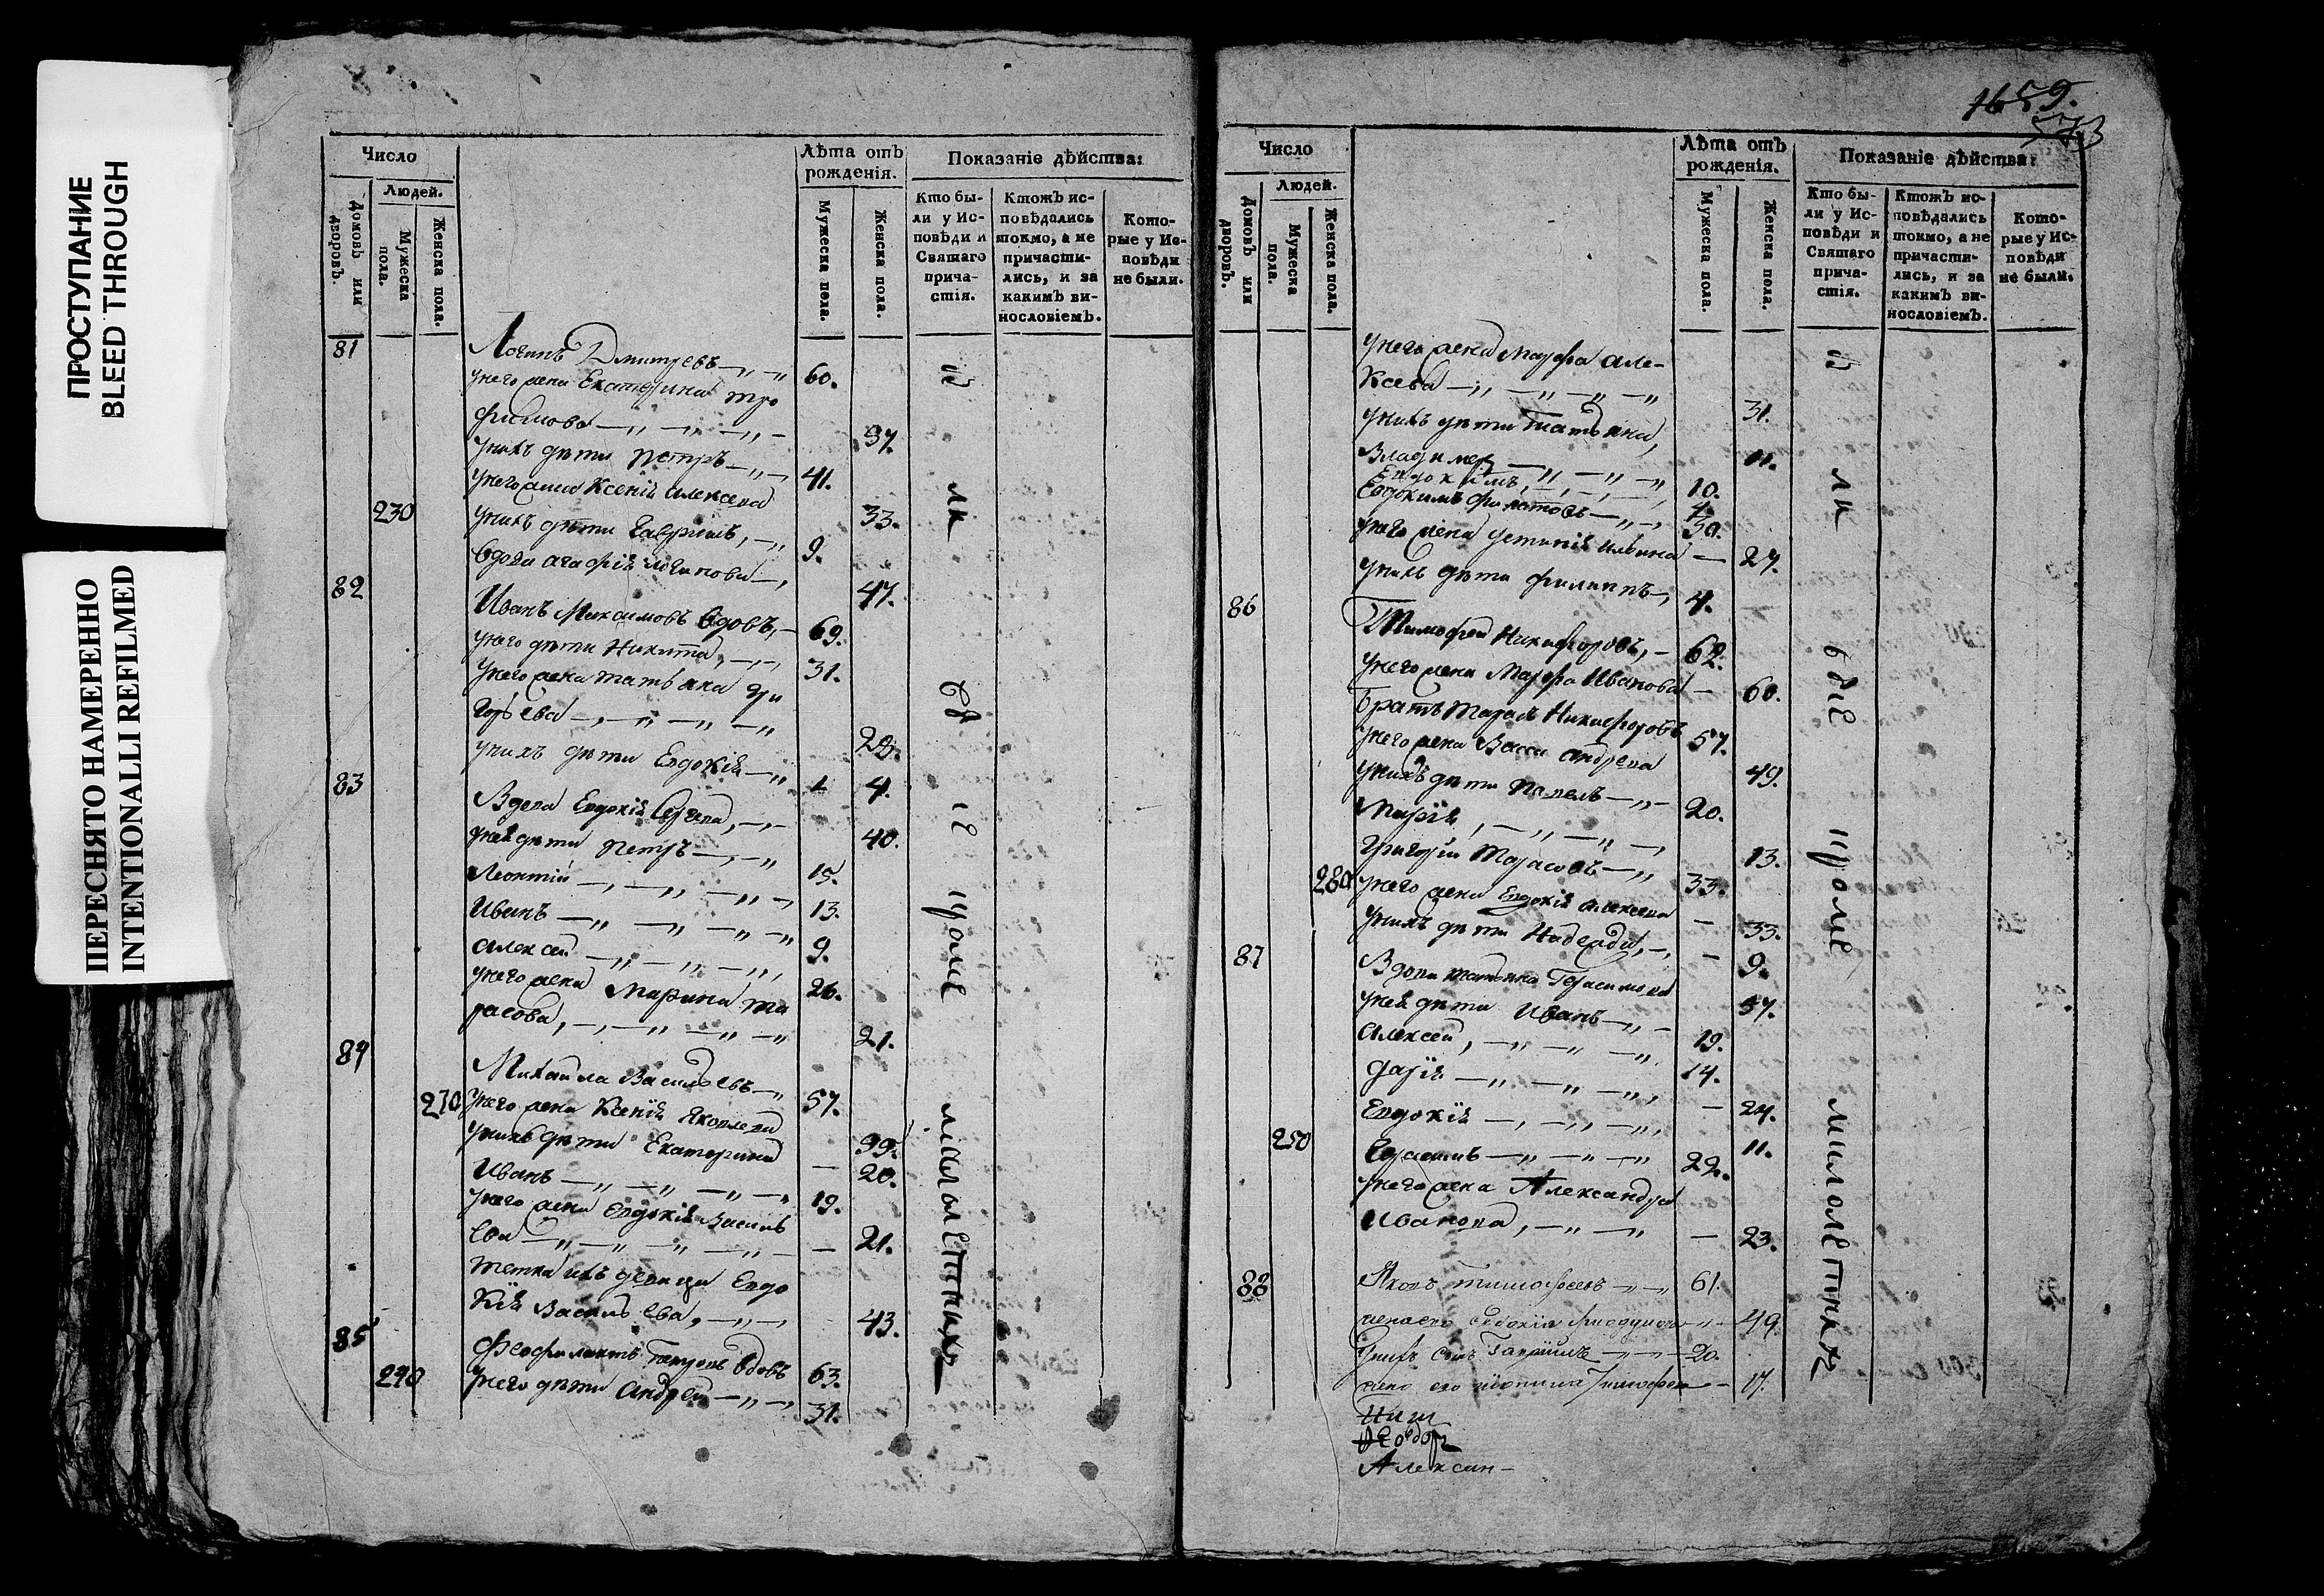 ПРОСТУПАНИЕ
BLEED THROUGH
ПЕРЕСНЯТО НАМЕРЕННО
INTENTIONALLI REFILMED
Число
Людей.
Домовъ или дворовъ.
Мужеска пола.
Женска пола.
Лѣта отъ рожденія.
Мужеска пола.
Женска пола.
Показаніе дѣйства:
Кто бы-
ли у Ис-
повѣди и
Святаго
прича-
стія.
Ктожъ ис-
повѣдались
токмо, а не
причасти-
лись, и за
какимъ ви-
нословіемъ.
Кото-
рые у Ис-
повѣди
не были.
81 Логинъ Дмитревъ 60.
унего жена Екатерина тро
фимова 57.
унихъ дѣти Петръ 41.
унего жена Ксенiя Алексева 33.
230 унихъ дѣти Гаврiилъ, 9.
вдова Агафiя Логинова 47.
82 Иванъ Максимовъ вдовъ, 69.
унего дѣти Никита, 31.
унего жена татьяна гри
горьева 29.
унихъ дѣти Евдокiя 4.
83 Вдова Евдокiя Сергева, 40.
унея дѣти Петръ 15.
Леонтiй 13.
Иванъ 9.
Алексей 26.
унего жена Марина та
расова, 21.
84 Михайла Васильевъ 57.
270 унего жена Ксенiя Яковлева 55.
унихъ дѣти Екатерина 20.
Иванъ 19.
унего жена Евдокiя Василь
ева 21.
тетка ихъ девица Евдо
кiя Васильева, 43.
85 Феофилактъ Петровъ вдовъ 63.
240 унего дѣти Андрей 31.
были
кроме
малолетныхъ
1659.
573
Число
Людей.
Домовъ или дворовъ.
Мужеска пола.
Женска пола.
Лѣта отъ рожденія.
Мужеска пола.
Женска пола.
Показаніе дѣйства:
Кто бы-
ли у Ис-
повѣди и
Святаго
прича-
стія.
Ктожъ ис-
повѣдались
токмо, а не
причасти-
лись, и за
какимъ ви-
нословіемъ.
Кото-
рые у Ис-
повѣди
не были.
унего жена Марфа Але-
ксева 31.
унихъ дѣти Татьяна, 11.
Владимер 10.
Евдокимъ, 4.
Евдокимъ филатовъ 30.
унего жена Устинiя Ильина 27.
унихъ дѣти филиппъ 4.
86 Тимофей Никифоровъ, 62.
унего жена Марфа Иванова 60.
Братъ Тарасъ Никифоровъ 57.
унего жена Васса Андрева 49.
унихъ дѣти Павелъ 20.
Марiя, 13.
Григорiй Тарасовъ 33.
280 унего жена Евдокiя Алексева 33.
унихъ дѣти Надежда, 9.
87 Вдова татьяна Герасимова 57.
унея дѣти Иванъ 19.
Алексей, 14.
Дарiя 24.
Евдокiя 11.
250 Герасимъ 22.
унего жена Александра
Иванова, 23.
88 Яковъ тимофеевъ 61.
жена его 49.
унихъ сынъ Гаврiилъ 20.
жена его Тимофеева 17.
Ѳеодоръ
Алексан-
были
кроме
малолетныхъ